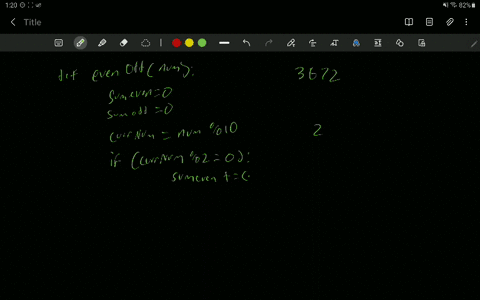 1:20
82%
Title
def evenOdd(num): 3672
sumeven=0
sumodd=0
currNum = num %10 2
if (currNum %2 = 0):
sumeven +=c